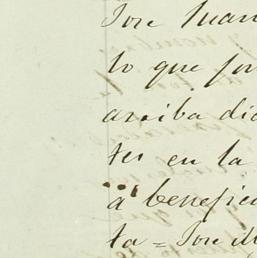 Jose Juan
lo que for
arriba dic
tes en la
a benefici
ta = Jose M